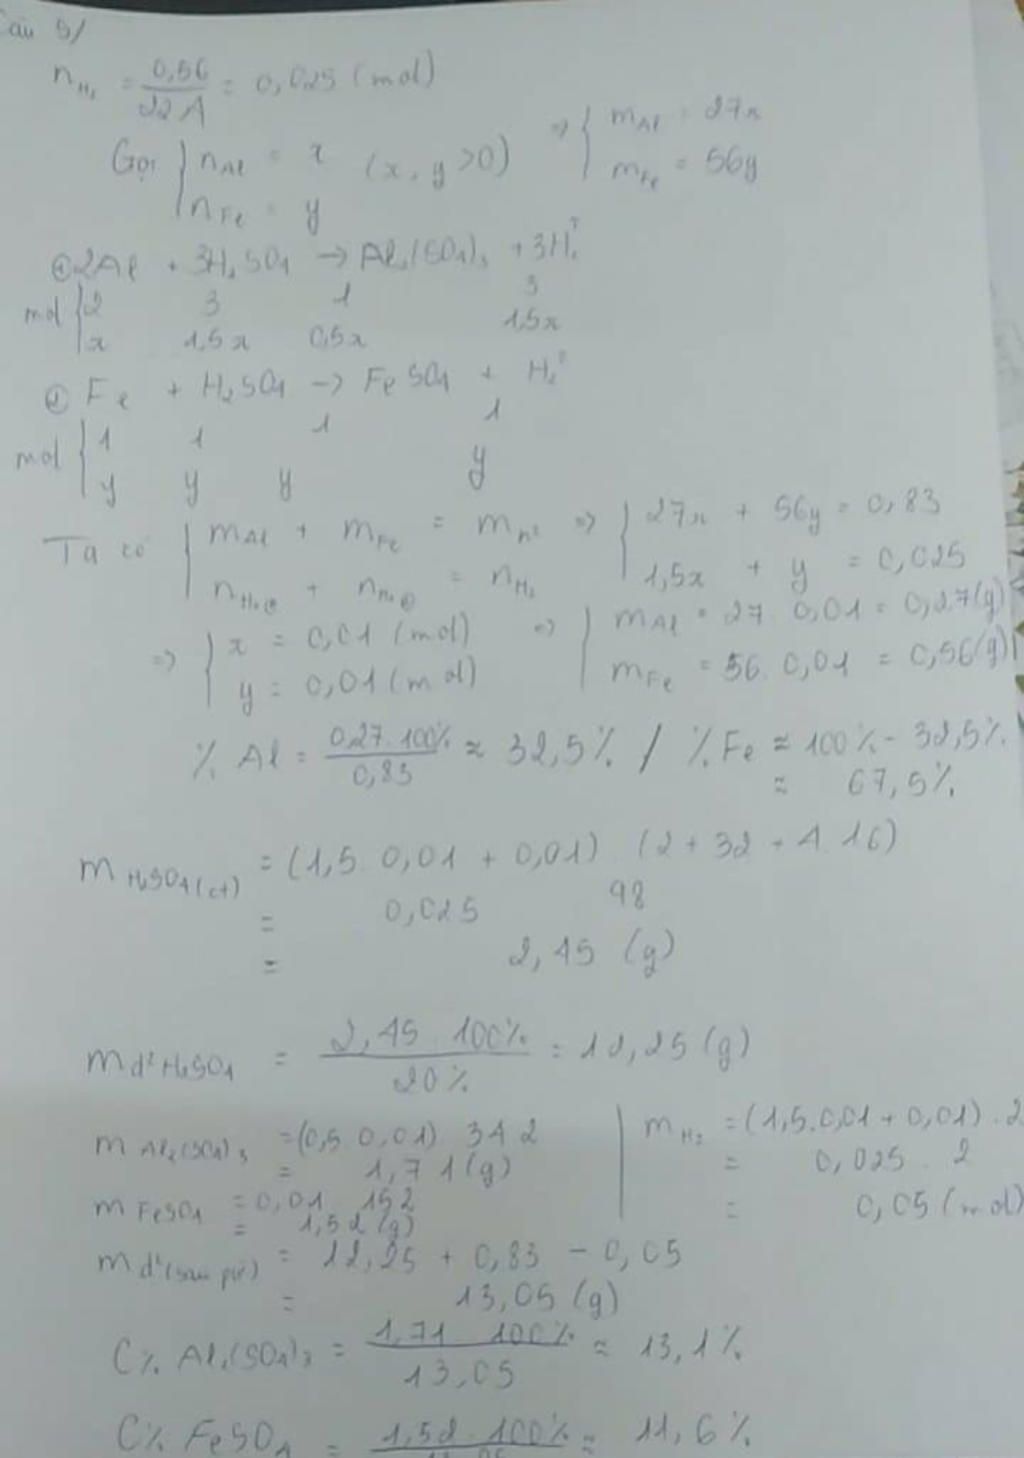 Câu 5/
n H₂ = 0,56 / 22,4 = 0,025 (mol)
Gọi { n Al = x (x, y >0) => { m Al = 27x
n Fe = y m Fe = 56y
① 2Al + 3H₂SO₄ → Al₂(SO₄)₃ + 3H₂↑
mol { 2 3 1 3
x 1,5x 0,5x 1,5x
② Fe + H₂SO₄ → FeSO₄ + H₂↑
mol { 1 1 1 1
y y y y
Ta có { m Al + m Fe = m h² => { 27x + 56y = 0,83
n H₂① + n H₂② = n H₂ 1,5x + y = 0,025
=> { x = 0,01 (mol) => { m Al = 27. 0,01 = 0,27(g)
y = 0,01 (mol) m Fe = 56. 0,01 = 0,56(g)
% Al = 0,27. 100% / 0,83 ≈ 32,5% / % Fe ≈ 100% - 32,5%
≈ 67,5%
m H₂SO₄(ct) = (1,5. 0,01 + 0,01) . (2 + 32 + 4. 16)
= 0,025 98
= 2,45 (g)
m d² H₂SO₄ = 2,45. 100% / 20% = 12,25 (g)
m Al₂(SO₄)₃ = (0,5. 0,01) 342
= 1,71 (g)
m FeSO₄ = 0,01. 152
= 1,52 (g)
m H₂ = (1,5.0,01 + 0,01) . 2
= 0,025 . 2
= 0,05 (mol)
m d² (sau pứ) = 12,25 + 0,83 - 0,05
= 13,05 (g)
C% Al₂(SO₄)₃ = 1,71 . 100% / 13,05 ≈ 13,1%
C% FeSO₄ = 1,52 . 100% ≈ 11,6%